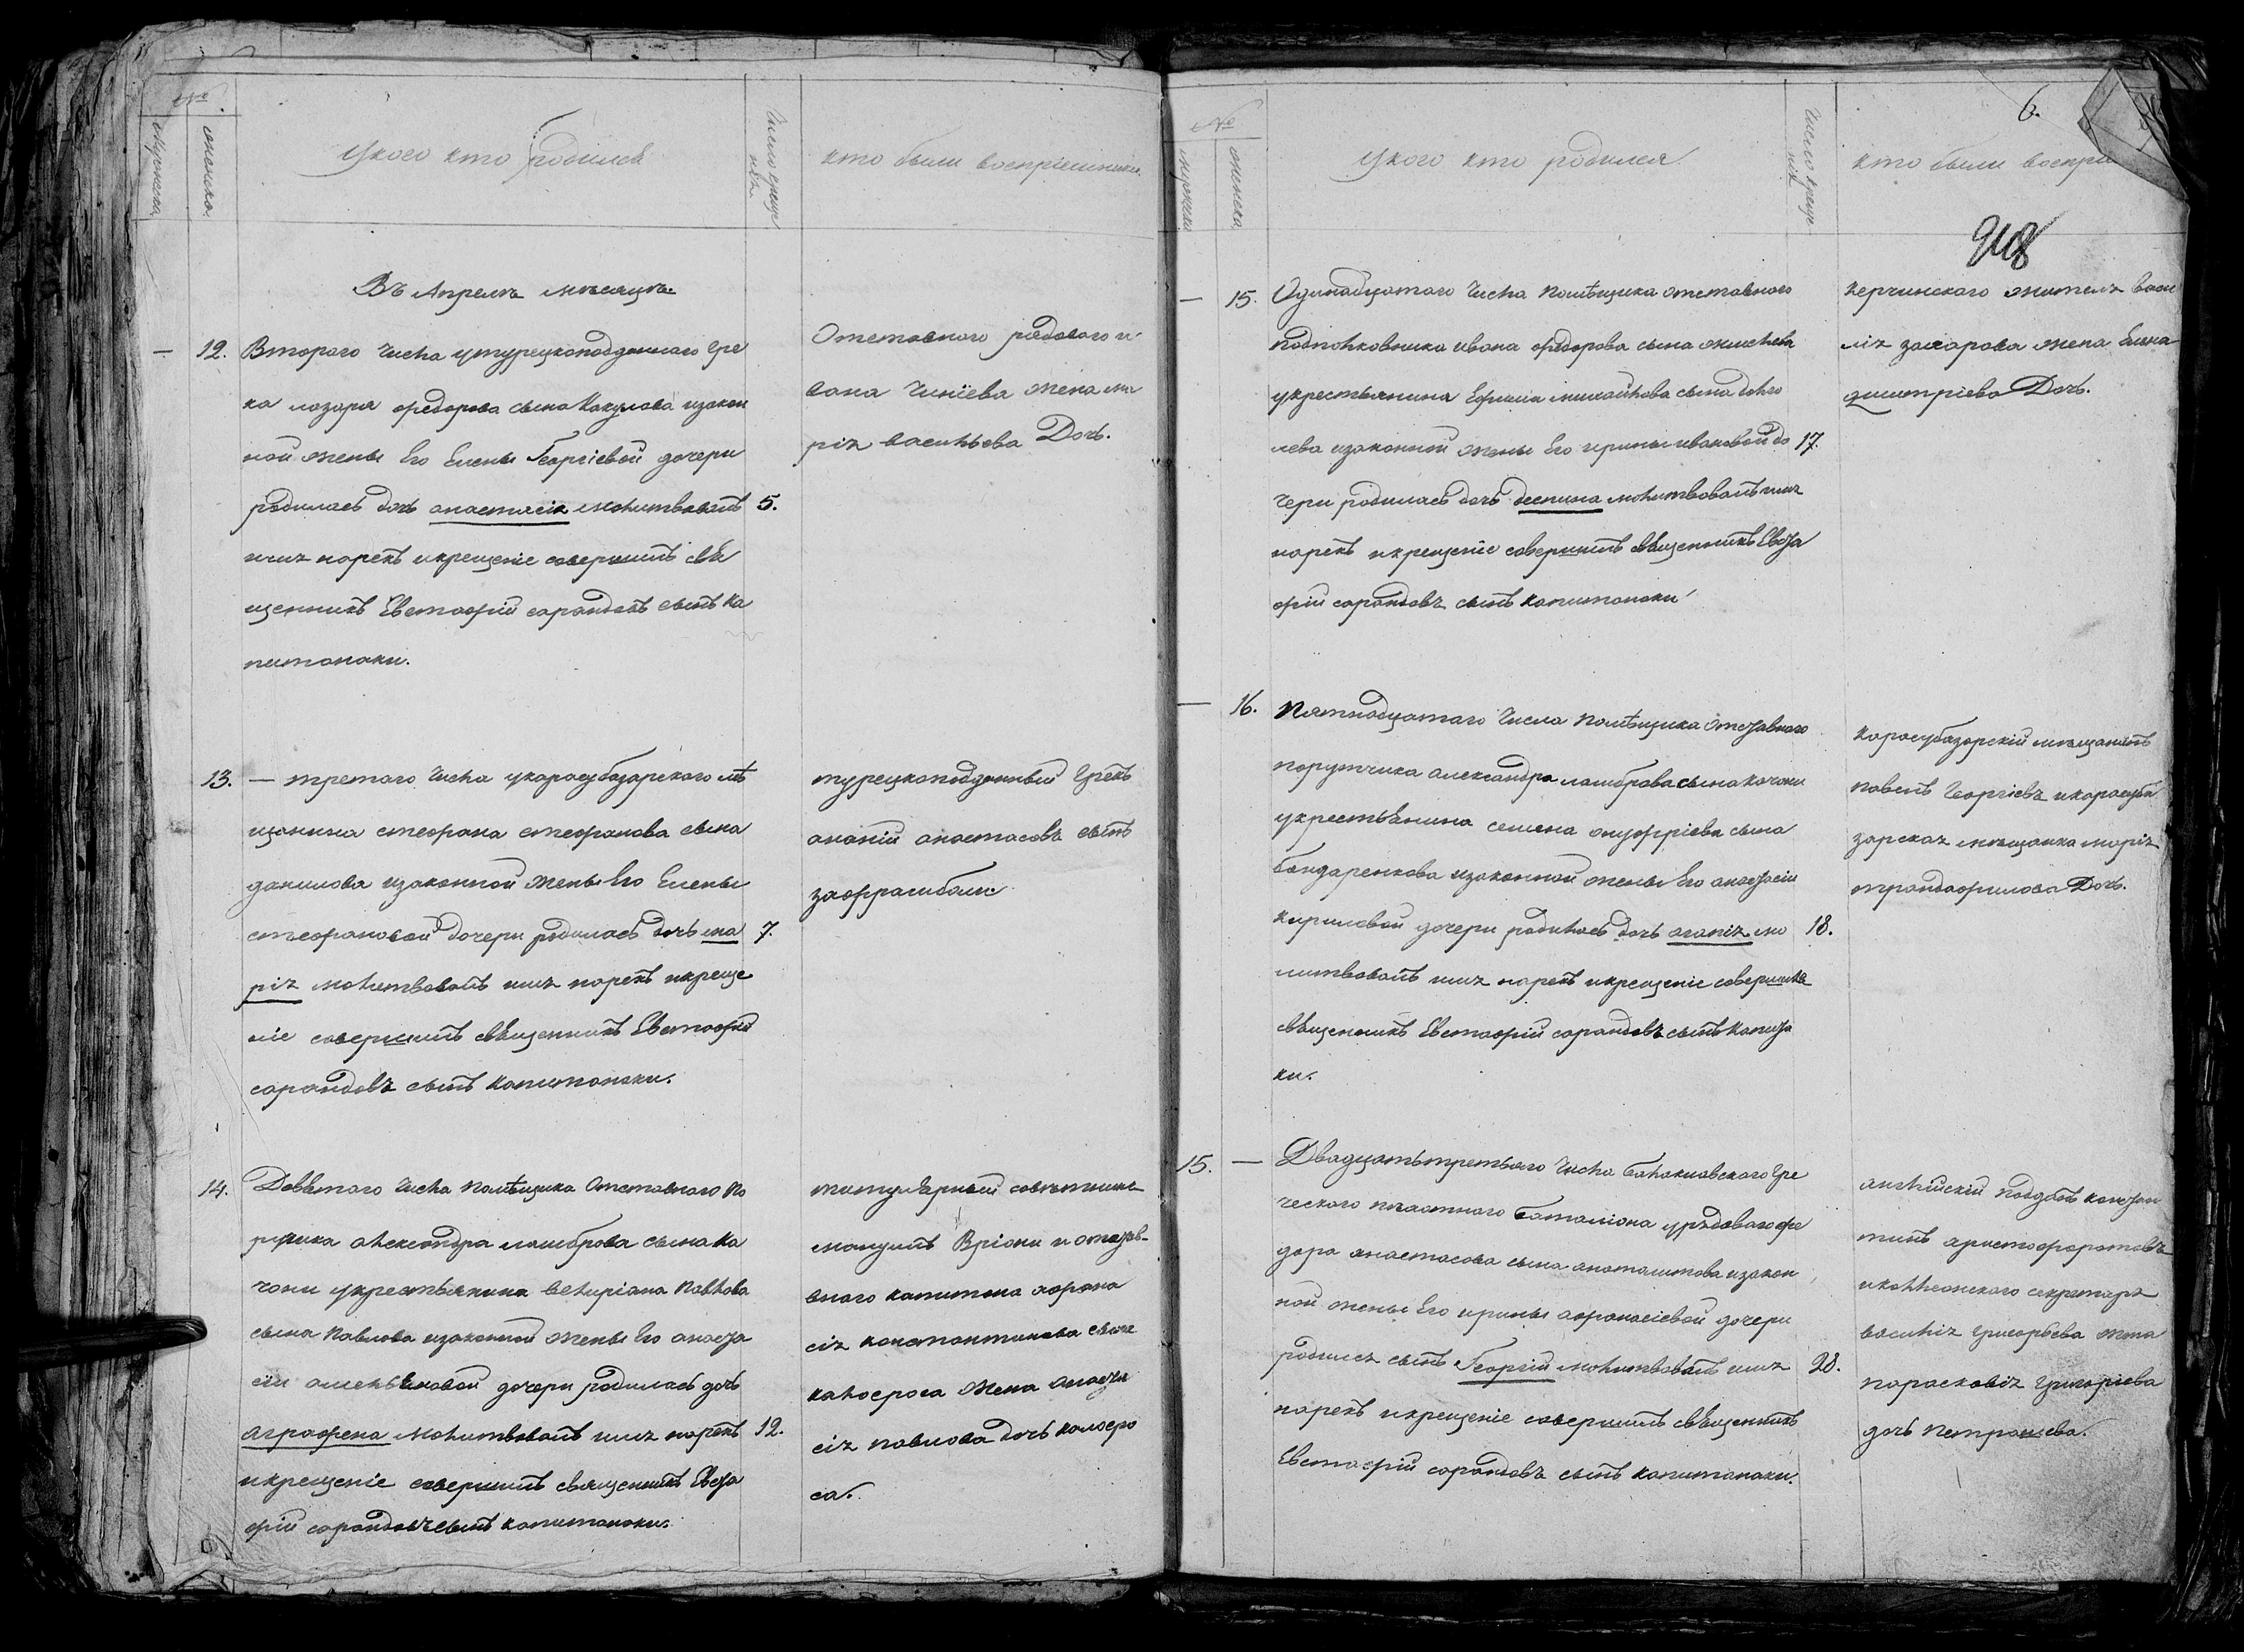 №
мужеска
женска
У кого кто родился
Число креще
нія
кто были воспріемники
Въ Апрелѣ месяцѣ.
— 12. Втораго числа у турецкоподданнаго гре
ка лазаря федорова сына Кокулова изакон
ной жены Его Елены Георгіевой дочери
родилась дочь анастасіа молитвовалъ 5.
имя нарекъ икрещеніе совершилъ свя
щенникъ Евстафій сарандовъ сынъ Ка
питанаки.
Отставного рядового и
вана жена ма
рія васильева Дочь.
13. — третаго числа укарасубазарского мѣ
щанина стефана стефанова сына
данилова изаконной жены Его Елены
стефановой дочери родилась дочь ма 7.
рія молитвовалъ имя нарекъ икреще
ніе совершилъ священникъ Евстафій
сарандовъ сынъ капитанаки.
турецкоподданный Грекъ
ананій анастасовъ сынъ
14. Девятаго числа помѣщика Отставного По
ручика александра ламброва сына Ка
чони укрестьянина Павлова
сына Павлова изаконной жены Его анаста
сіи дочери родилась дочь
аграфена молитвовалъ имя нарекъ 12.
икрещеніе совершилъ священникъ Евста
фій сарандовъ сынъ капитанаки.
титулярный советникъ
мануилъ Вріони и отстав-
вного капитана афана
сія константинова сына
калоероса жена анаста
сія павлова дочь калоеро
са.
№
мужеска
женска
У кого кто родился.
Число креще
нія
6.
кто были воспріе
— 15. Одинадцатаго числа помѣщика отставного
подполковника ивана федорова сына
укрестьянина Ефима михайлова сына
лева изаконной жены Его ирины ивановой до 17.
чери родилась дочь деспина молитвовалъ имя
нарекъ икрещеніе совершилъ священникъ Евста
фій сарандовъ сынъ капитанаки
керчинского жителя васи
лія захарова жена Елена
димитріева Дочь.
— 16. Пятнадцатаго числа помѣщика отставного
порутчика александра ламброва сына качони
укрестьянина семена онуфріева сына
бондаренкова изаконной жены Его анастасіи
кириловой дочери родилась дочь агапія мо 18.
литвовалъ имя нарекъ икрещеніе совершилъ
священникъ Евстафій сарандовъ сынъ капита
ки.
карасубазарскій мещанинъ
павелъ Георгіевъ икарасуба
зарская мещанка марія
трандафилова Дочь.
15. — Двадцатьтретьяго числа балаклавского Гре
ческого пехотного баталіона урядоваго фе
дора анастасова сына изакон
ной жены Его ирины афанасіевой дочери
родился сынъ Георгій молитвовалъ имя 28.
нарекъ икрещеніе совершилъ священникъ
Евстафій сарандовъ сынъ капитанаки.
англійскій поддонъ констан
тинъ
секретаря
василія григорьева жена
параскевія григоріева
дочь